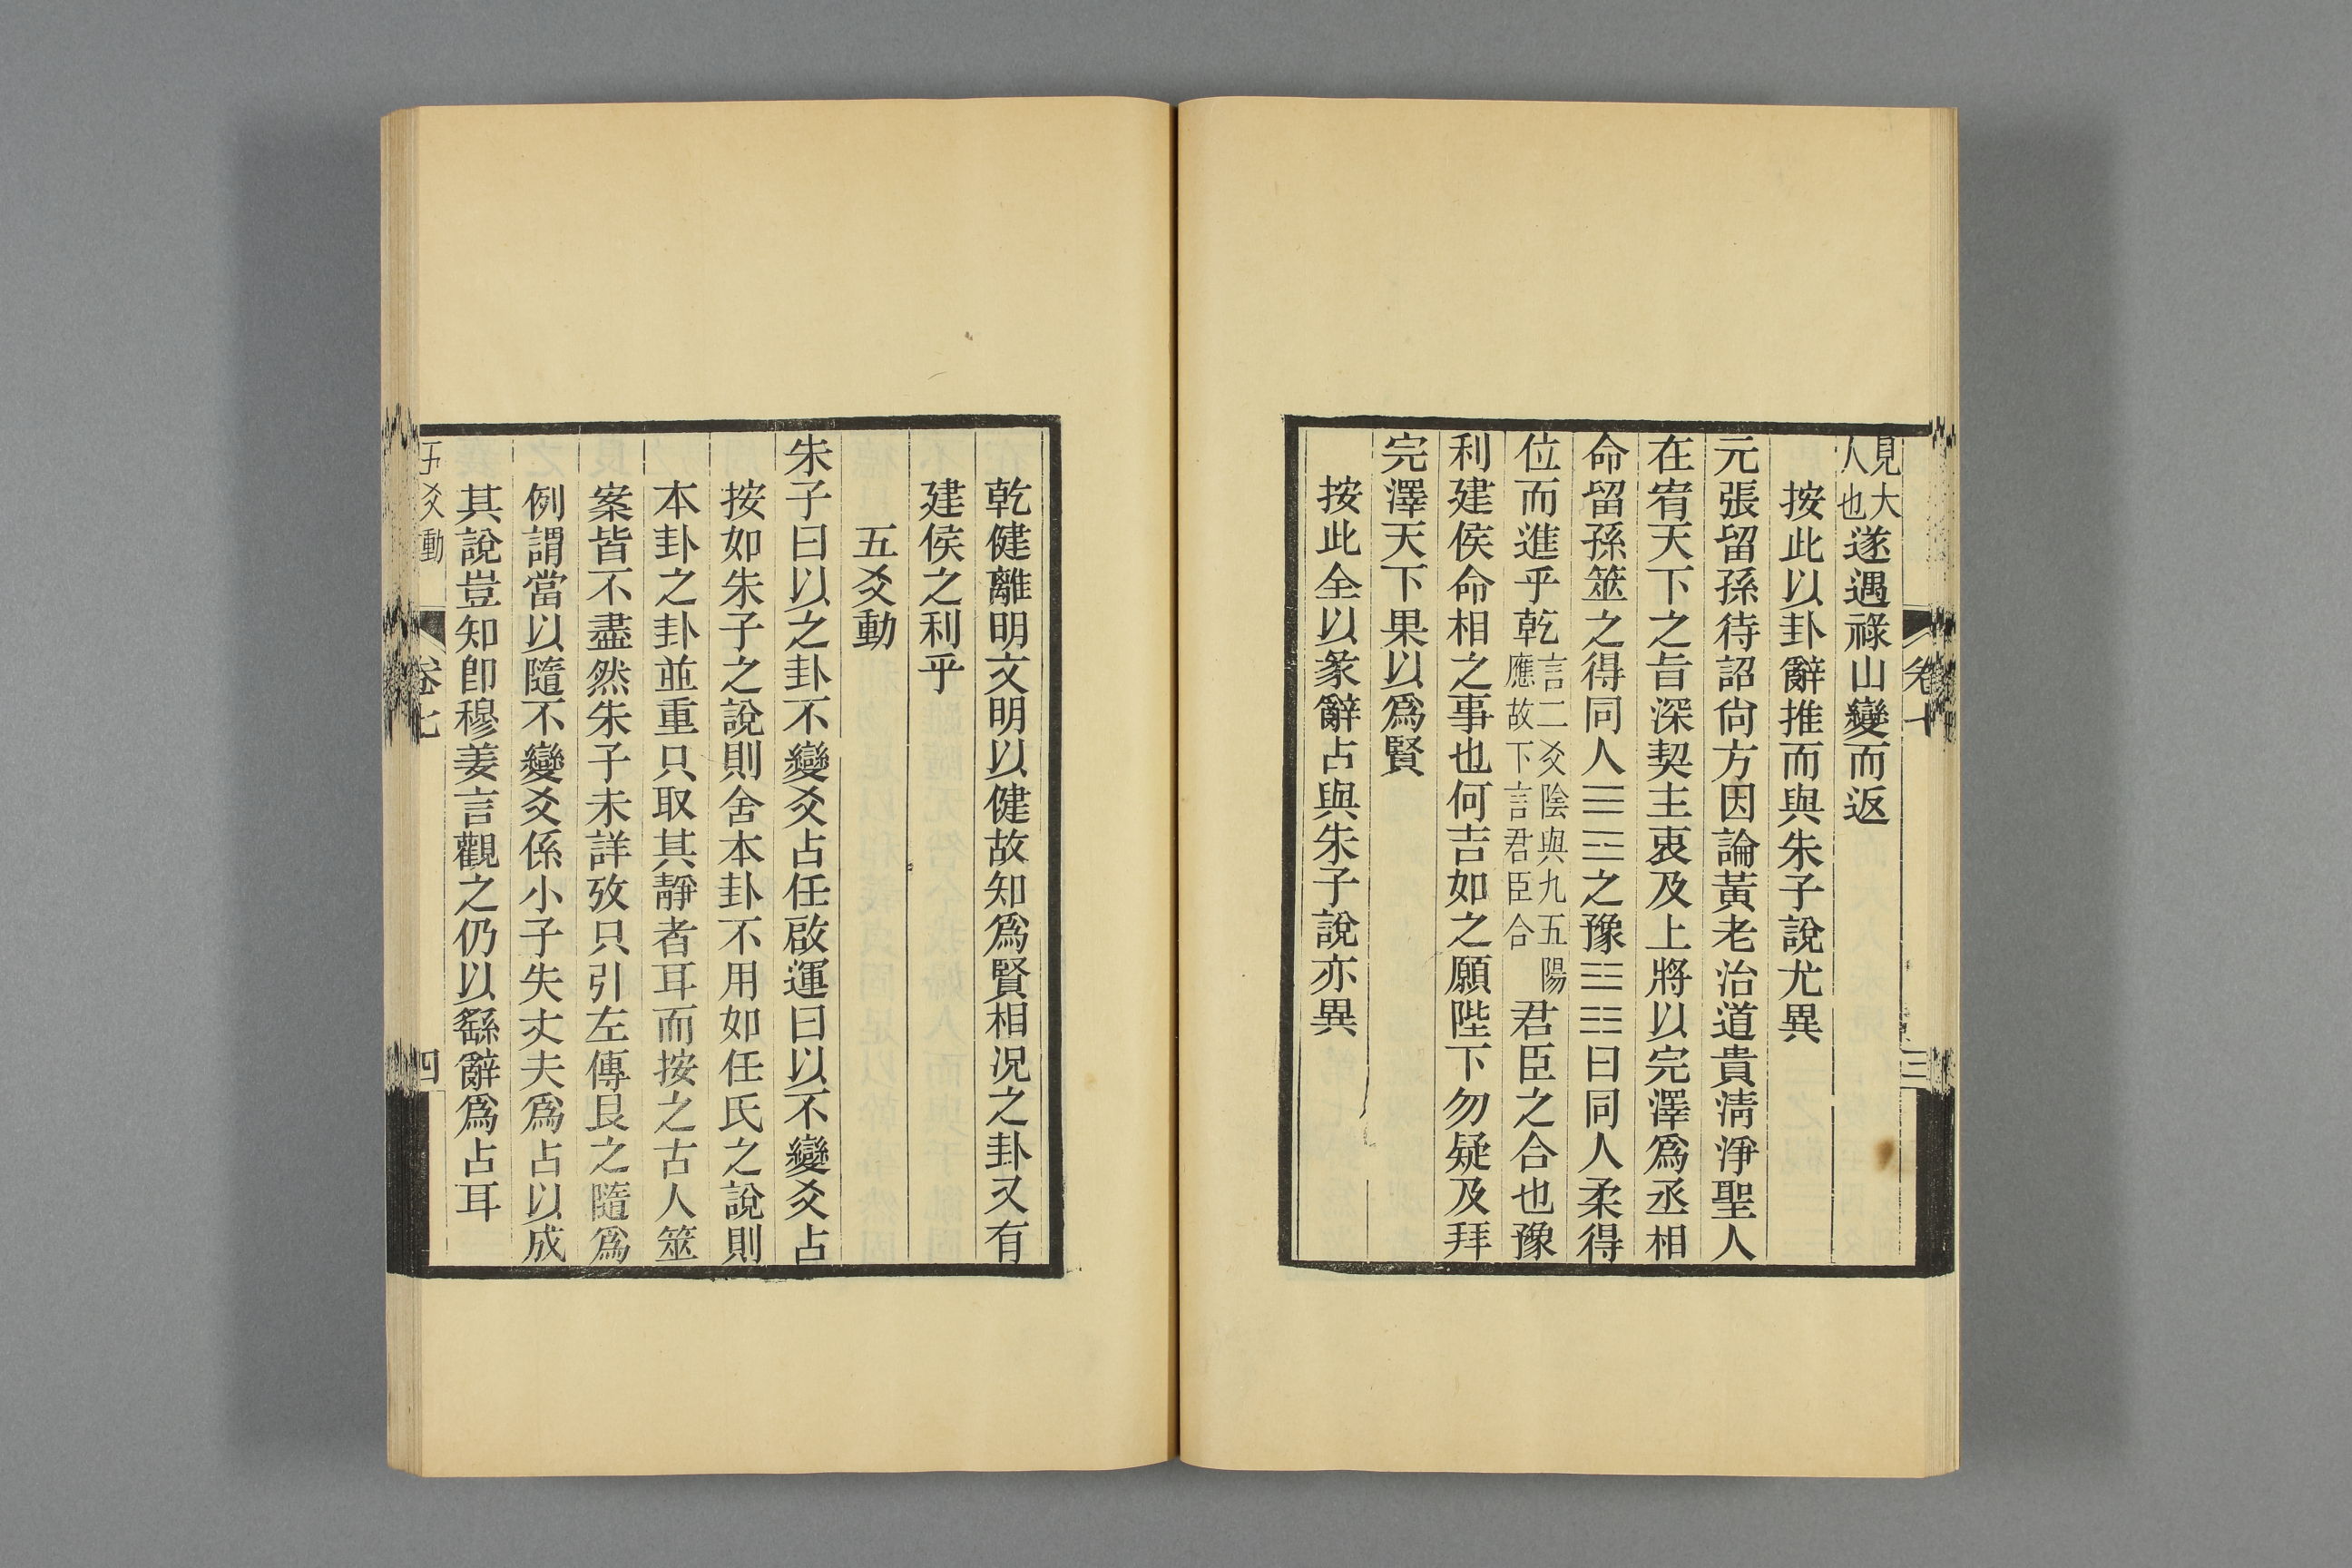 見大人也遂遇祿山變而返
按此以卦辭推而與朱子說尤異
元張留孫待詔尙方因論黃老治道貴淸淨聖人
在宥天下之旨深契主衷及上將以完澤爲丞相
命留孫筮之得同人之豫曰同人柔得
位而進乎乾言二爻陰與九五陽應故下言君臣合君臣之合也豫
利建侯命相之事也何吉如之願陛下勿疑及拜
完澤天下果以爲賢
按此全以彖辭占與朱子說亦異
乾健離明文明以健故知爲賢相况之卦又有
建侯之利乎
五爻動
朱子曰以之卦不變爻占任啟運曰以不變爻占
按如朱子之說則舍本卦不用如任氏之說則
本卦之卦並重只取其靜者耳而按之古人筮
案皆不盡然朱子未詳攷只引左傳艮之隨爲
例謂當以隨不變爻係小子失丈夫爲占以成
其說豈知卽穆姜言觀之仍以繇辭爲占耳
五爻動 卷七 四